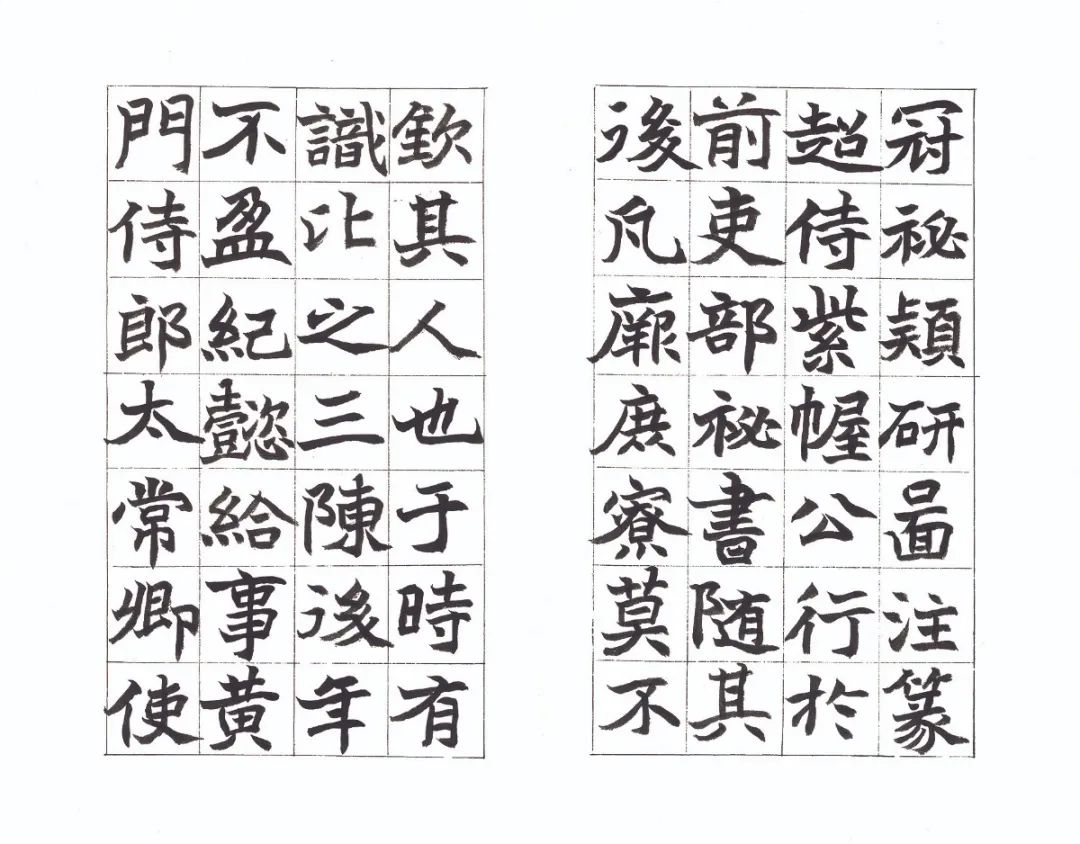 冠祕穎研圖注篆
超侍紫幄公行於
前吏部祕書随其
後凡廊庶寮莫不
欽其人也于時有
識比之三陳後年
不盈紀懿給事黄
門侍郎太常卿使